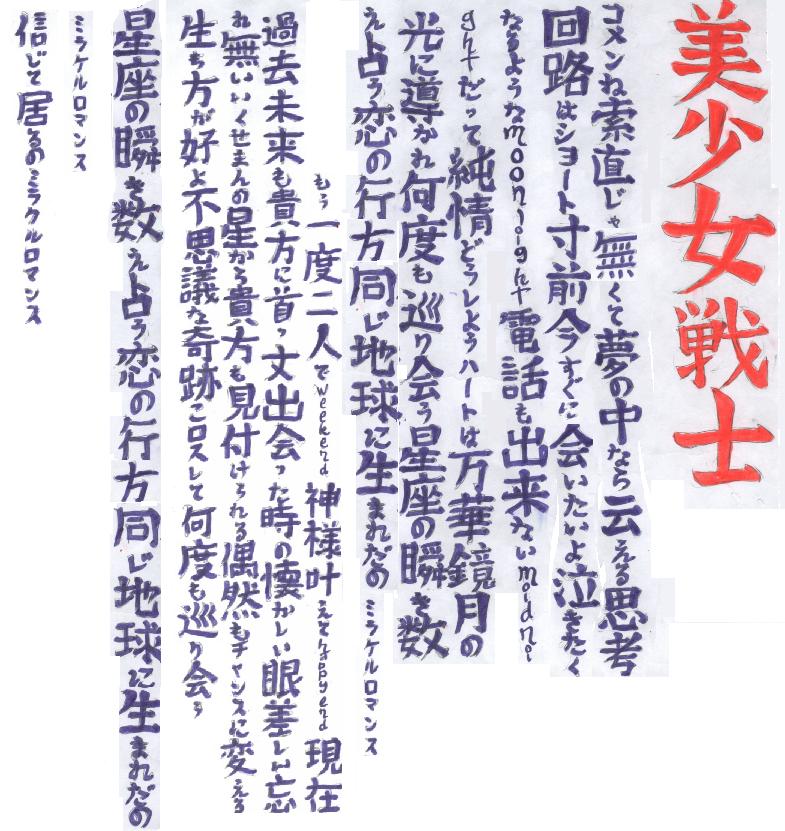 美少女戦士
コメンね素直じゃ無くて夢の中なら云える思考
回路はショート寸前今すぐに会いたいよ泣きたく
なるようなmoonlight電話も出来ないmidni
ghtだって純情どうしようハートは万華鏡月の
光に導かれ何度も巡り会う星座の瞬き数
え占う恋の行方同じ地球に生まれたのミラクルロマンス
もう一度二人でweekend神様叶えてhappyend現在
過去未来も貴方に首っ丈出会った時の懐かしい眼差しん忘
れ無いいくせまんの星から貴方も見付けられる偶然もチャンスに変える
生き方が好よ不思議な奇跡こロスして何度も巡り会う
星座の瞬き数え占う恋の行方同じ地球に生まれたの
ミラクルロマンス
信じて居るのミラクルロマンス